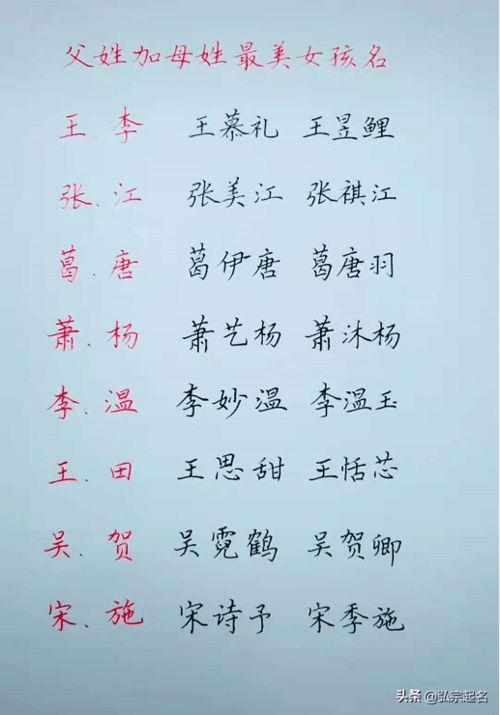 父姓加母姓最美女孩名
王、李 王慕礼 王昱鲤
张、江 张美江 张祺江
葛、唐 葛伊唐 葛唐羽
萧、杨 萧艺杨 萧沐杨
李、温 李妙温 李温玉
王、田 王思甜 王恬芯
吴、贺 吴霓鹤 吴贺卿
宋、施 宋诗予 宋季施
头条 @弘宗起名